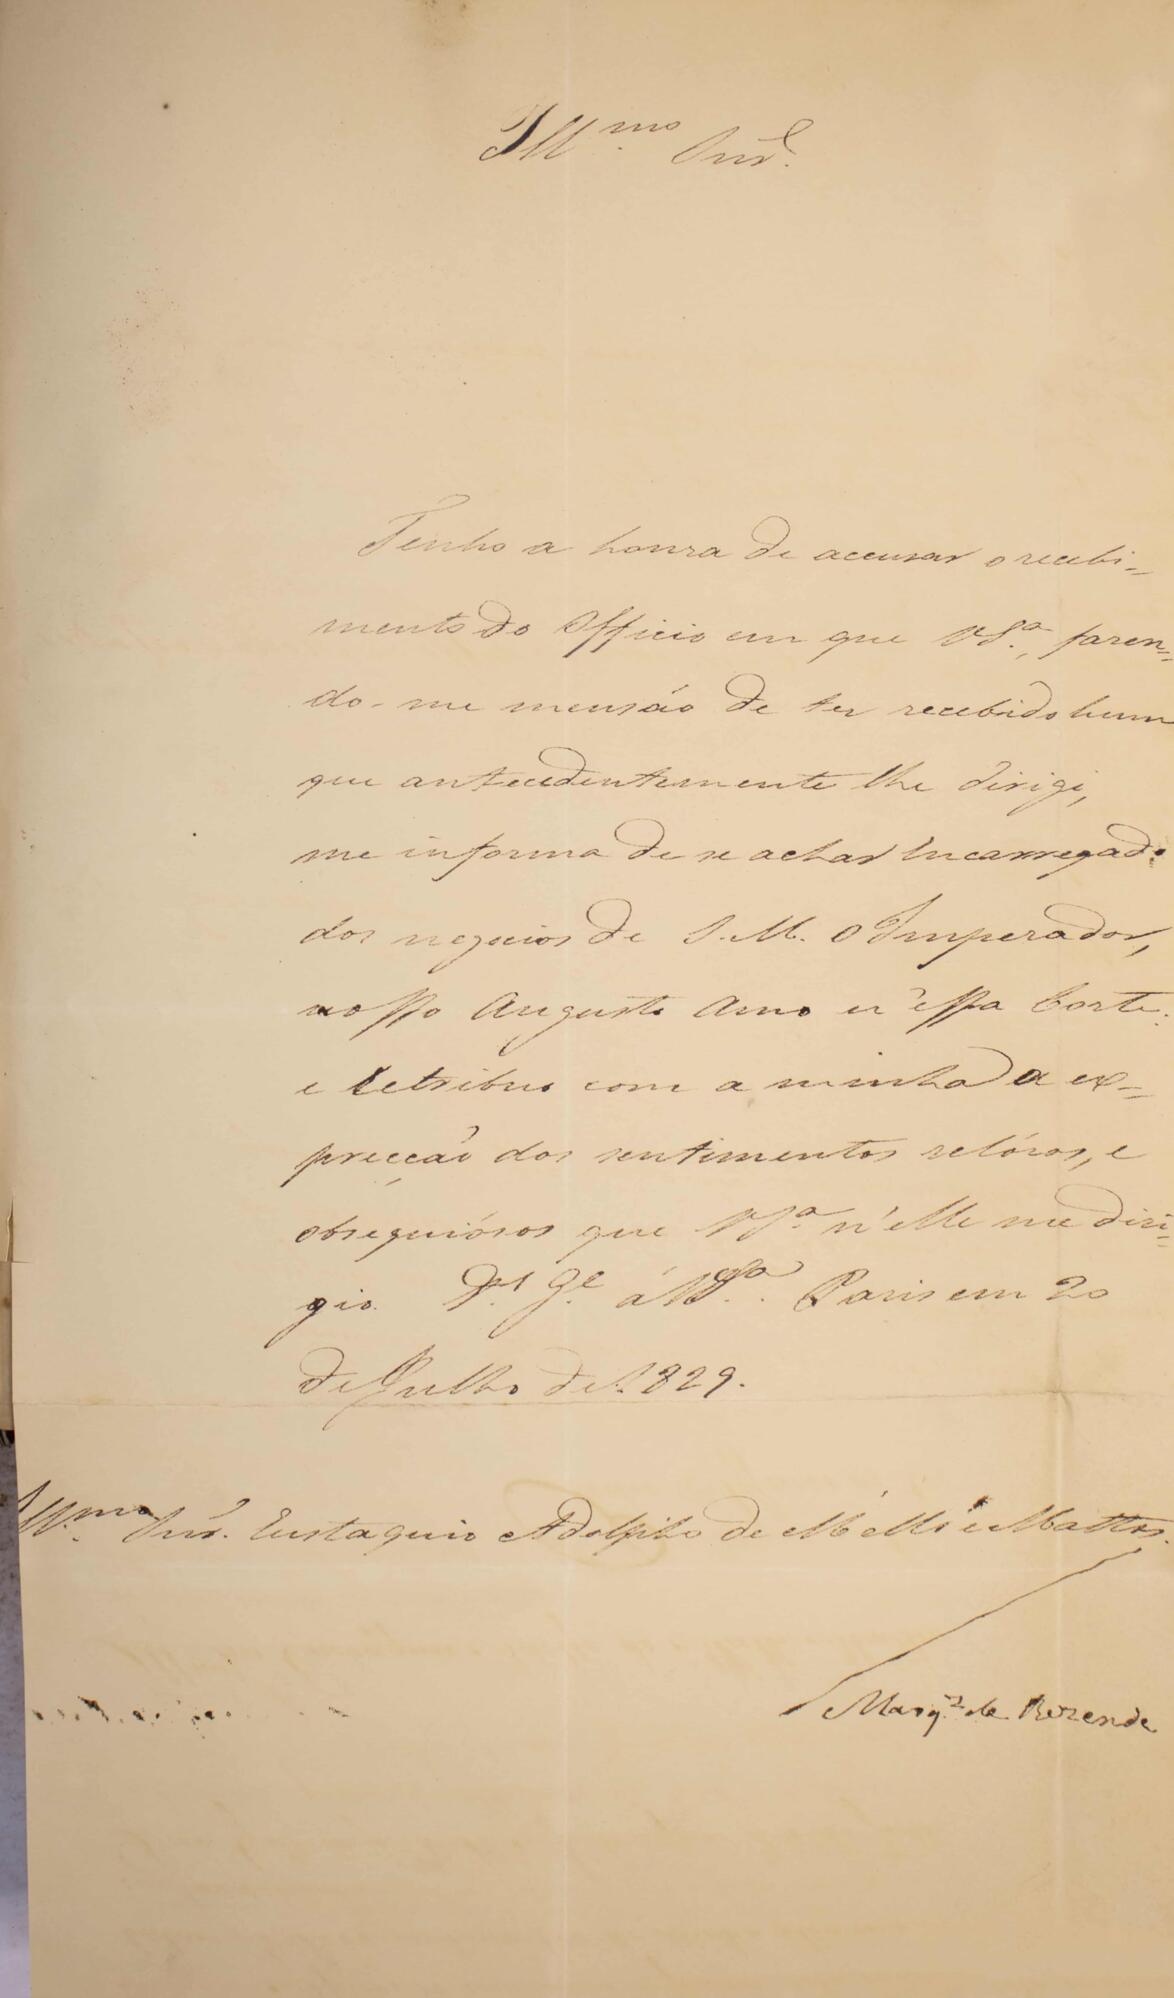 Illmo. Snr.
Tenho a honra de accusar o recebi-
mento do Officio em que VSa., fazen-
do-me mensáo de ter recebido hum
que antecedentemente lhe dirigi,
me informa de se achar Encarregado
dos negocios de S. M. O Imperador,
nosso Augusto Amo n'essa Corte:
e Retribuo com a minha a ex-
precção dos sentimentos zelózos, e
obsequiósos que VSa n'elle me diri-
gio. Ds. Ge. á VSa. Paris em 20
de Julho de 1829.
Illmo. Snr. Eustaquio Adolpho de Mello e Mattos.
Marqz. de Rezende